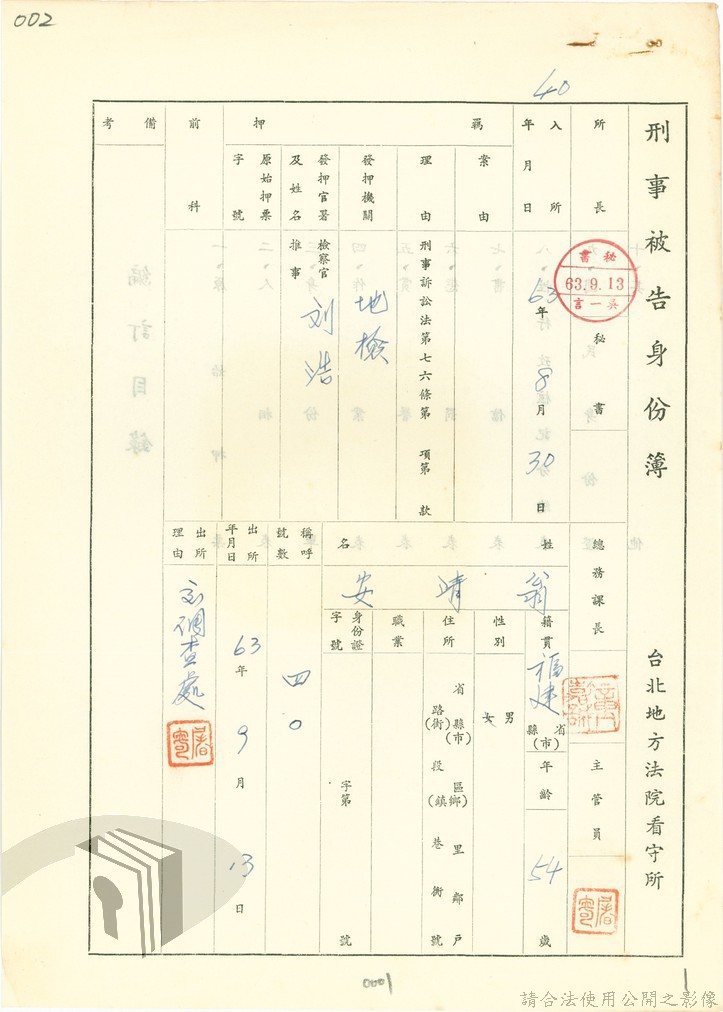 002
40
刑事被告身份簿
台北地方法院看守所
所長
秘書
秘書
63.9.13
吳一言
總務課長
主管員
入所
年月日
63年8月30日
羈押
案由
理由
刑事訴訟法第七六條第 項第 款
發押機關
地檢
發押官署及姓名
檢察官
推事
刘浩
原始押票字號
前科
備考
姓名
翁靖安
籍貫
福建
省
縣(市)
年齡
54歲
性別
男
女
住所
省縣(市)區鄉(鎮)里鄰戶
路(街)段巷衖號
職業
身份證字號
字第 號
稱呼號數
四0
出所年月日
63年9月13日
出所理由
調查處
編訂目錄
0001
請合法使用公開之影像